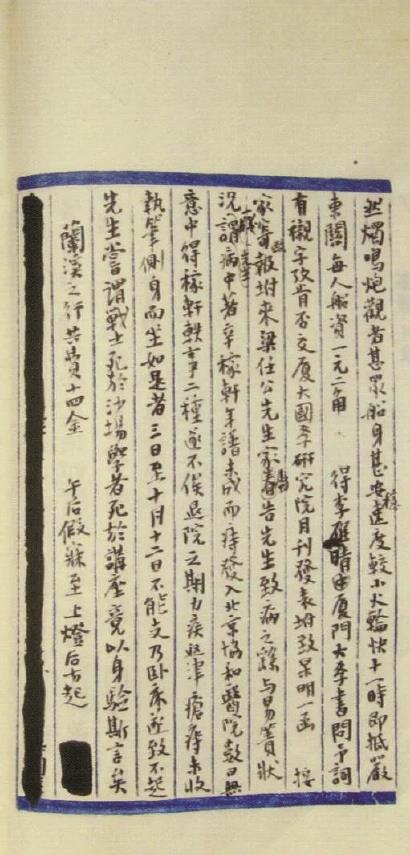 然燭鳴炮觀者甚眾船身甚安穩速度較小火輪快十一時即抵嚴
東關每人船資一元二角 得李雁晴由廈門大學書問予詞
有襯字攷肯否交廈大國學研究院月刊發表坿致杲明一函 接
家寄報坿來梁任公先生家春啟告先生致病之繇與易簀狀
況謂病中著辛稼軒年譜未成而痔發入北京協和醫院數日無
意中得稼軒軼事二種遂不俟退院之期力疾返津瘡痔未收
執筆側身而坐如是者三日至十月十二日不能支乃臥床遂致不起
先生嘗謂戰士死於沙場學者死於講座竟以身驗斯言矣
蘭溪之行共費十四金 午后假寐至上燈后方起